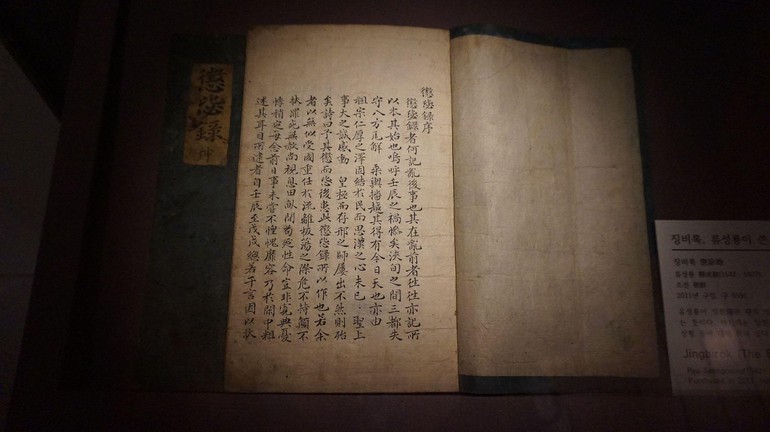 懲毖錄
坤
懲毖錄序
懲毖錄者何記亂後事也其在亂前者往往亦記所
以本其始也嗚呼壬辰之禍慘矣浹旬之間三都失
守八方瓦解 乘輿播越其得有今日天也亦由
祖宗仁厚之澤固結於民而思漢之心未已 聖上
事大之誠感動 皇極而存邢之師屢出不然則殆
矣詩曰予其懲而毖後患此懲毖錄所以作也若余
者以無似受國重任於流離板蕩之際危不持顚不
扶罪死無赦尙視息田畝間苟延性命豈非寬典憂
悸稍定每念前日事未嘗不惶愧靡容乃於閑中粗
述其耳目所逮者自壬辰至戊戌總若干言因以狀
징비록, 류성룡이 쓴
징비록
조선